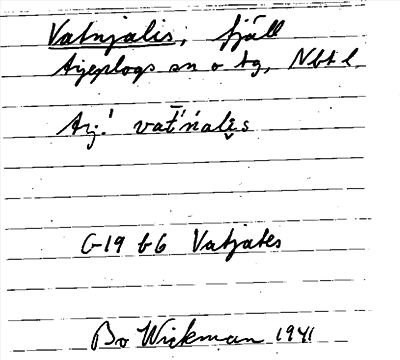 Vatnjalis, fjäll
Arjeplogs sn o tg, Nbt l.
Arj.
G-19 b6 Vatjates
Bo Wickman 1941